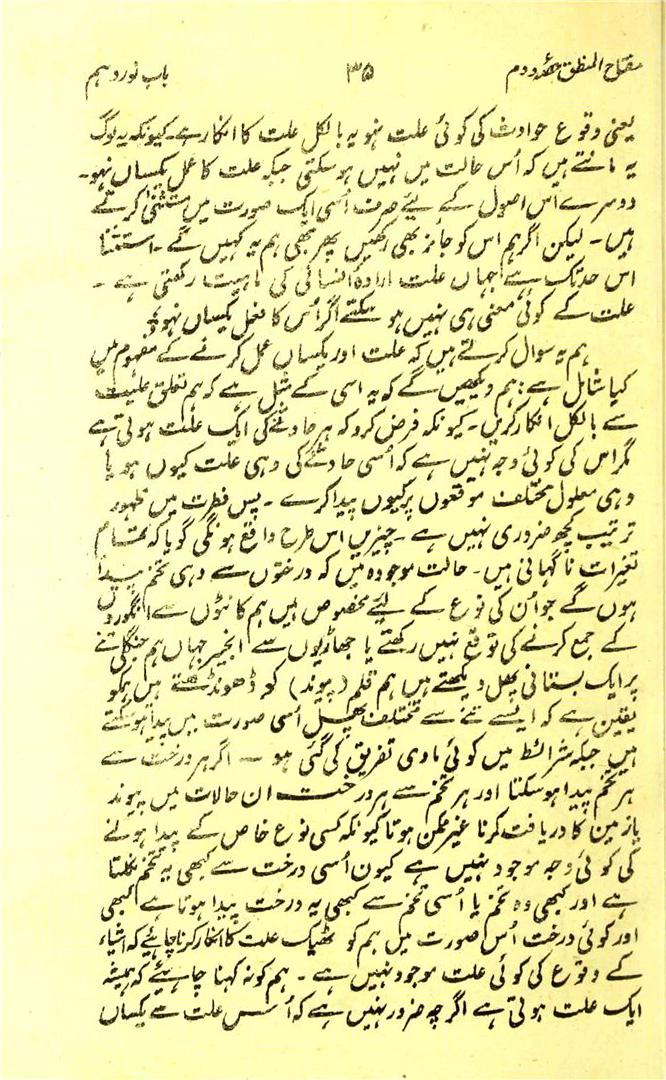 مفتاح المنطق حصہ دوم ۳۵ باب نوزدہم
یعنی وقوع حوادث کی کوئی علت نہو یہ بالکل علت کا انکار ہے۔ کیونکہ یہ لوگ
یہ مانتے ہیں کہ اُس حالت میں نہیں ہو سکتی جبکہ علت کا عمل یکساں نہو۔
دوسرے اس اصول کے لیئے صرف اُسی ایک صورت میں مستثنیٰ کرتے
ہیں۔ لیکن اگر ہم اس کو جائز بھی رکھیں پھر بھی ہم یہ کہیں گے۔ استثنا
اس حد تک ہے جہاں علت ارادۂ انسانی کی ماہیت رکھتی ہے۔
علت کے کوئی معنی ہی نہیں ہو سکتے اگر اُس کا فعل یکساں نہو۔
ہم یہ سوال کرتے ہیں کہ علت اور یکساں عمل کرنے کے مفہوم میں
کیا شامل ہے: ہم دیکھیں گے کہ یہ اسی کے مثل ہے کہ ہم تعلق علیت
سے بالکل انکار کریں۔ کیونکہ فرض کرو کہ ہر حادثے کی ایک علت ہوتی ہے
مگر اس کی کوئی وجہ نہیں ہے کہ اُسی حادثے کی وہی علت کیوں ہو یا
وہی معلول مختلف موقعوں پر کیوں پیدا کرے۔ پس فطرت میں ظہور
ترتیب کچھ ضروری نہیں ہے۔ چیزیں اس طرح واقع ہونگی گویا کہ تمام
تغیرات ناگہانی ہیں۔ حالت موجودہ میں کہ درختوں سے وہی تخم پیدا
ہوں گے جو اُن کی نوع کے لیئے مخصوص ہیں ہم کانٹوں سے انگوروں
کے جمع کرنے کی توقع نہیں رکھتے یا جھاڑیوں سے انجیر جہاں ہم جنگلی تنے
پر ایک بستانی پھل دیکھتے ہیں ہم قلم (پیوند) کو ڈھونڈھتے ہیں ہمکو
یقین ہے کہ ایسے تنے سے مختلف پھل اُسی صورت میں پیدا ہو سکتے
ہیں جبکہ شرائط میں کوئی مادی تفریق کی گئی ہو۔ اگر ہر درخت سے
ہر تخم پیدا ہو سکتا اور ہر تخم سے ہر درخت ان حالات میں پیوند
یا زمین کا دریافت کرنا غیر ممکن ہوتا کیونکہ کسی نوع خاص کے پیدا ہونے
کی کوئی وجہ موجود نہیں ہے کیوں اُسی درخت سے کبھی یہ تخم نکلتا
ہے اور کبھی وہ تخم یا اُسی تخم سے کبھی یہ درخت پیدا ہوتا ہے کبھی
اور کوئی درخت اُس صورت میں ہم کو ٹھیک علت کا انکار کرنا چاہیئے کہ اشیاء
کے وقوع کی کوئی علت موجود نہیں ہے۔ ہم کو نہ کہنا چاہیئے کہ ہمیشہ
ایک علت ہوتی ہے اگرچہ ضرور نہیں ہے کہ اُس علت سے یکساں